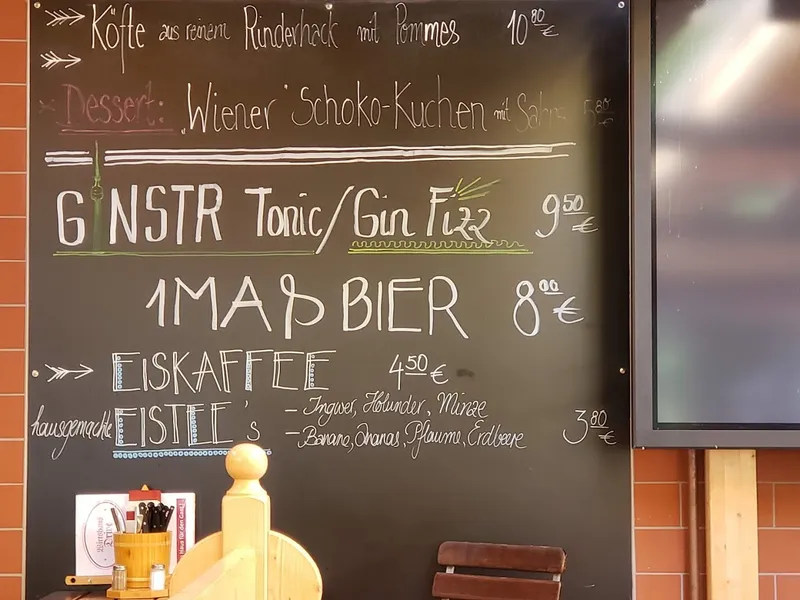 Köfte aus reinem Rinderhack mit Pommes 10 80 €
Dessert: „Wiener" Schoko-Kuchen mit Sahne 5 80
GINSTR Tonic/Gin Fizz 9 50 €
1 MAß BIER 8 00 €
EISKAFFEE 4 50 €
hausgemachte EISTEE's – Ingwer, Holunder, Minze
– Banane, Ananas, Pflaume, Erdbeere 3 80 €